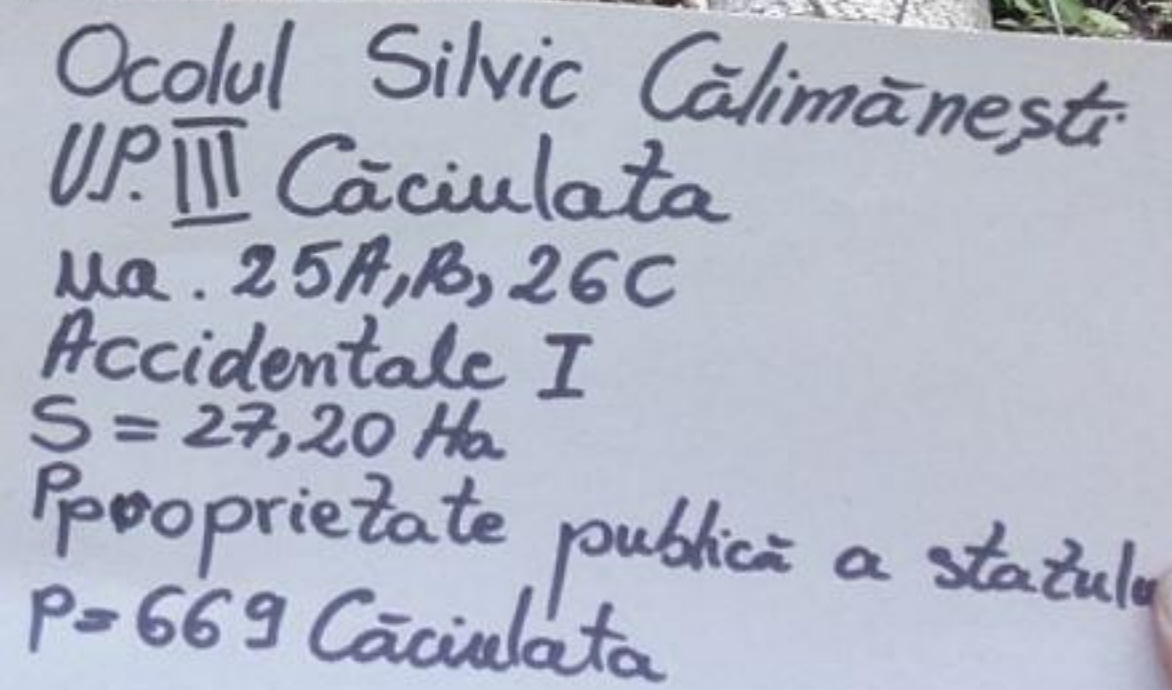 Ocolul Silvic Călimănești
UP. III Căciulata
ua. 25A,B, 26C
Accidentale I
S = 27,20 Ha
Pproprietate publică a statulu
P= 669 Căciulata